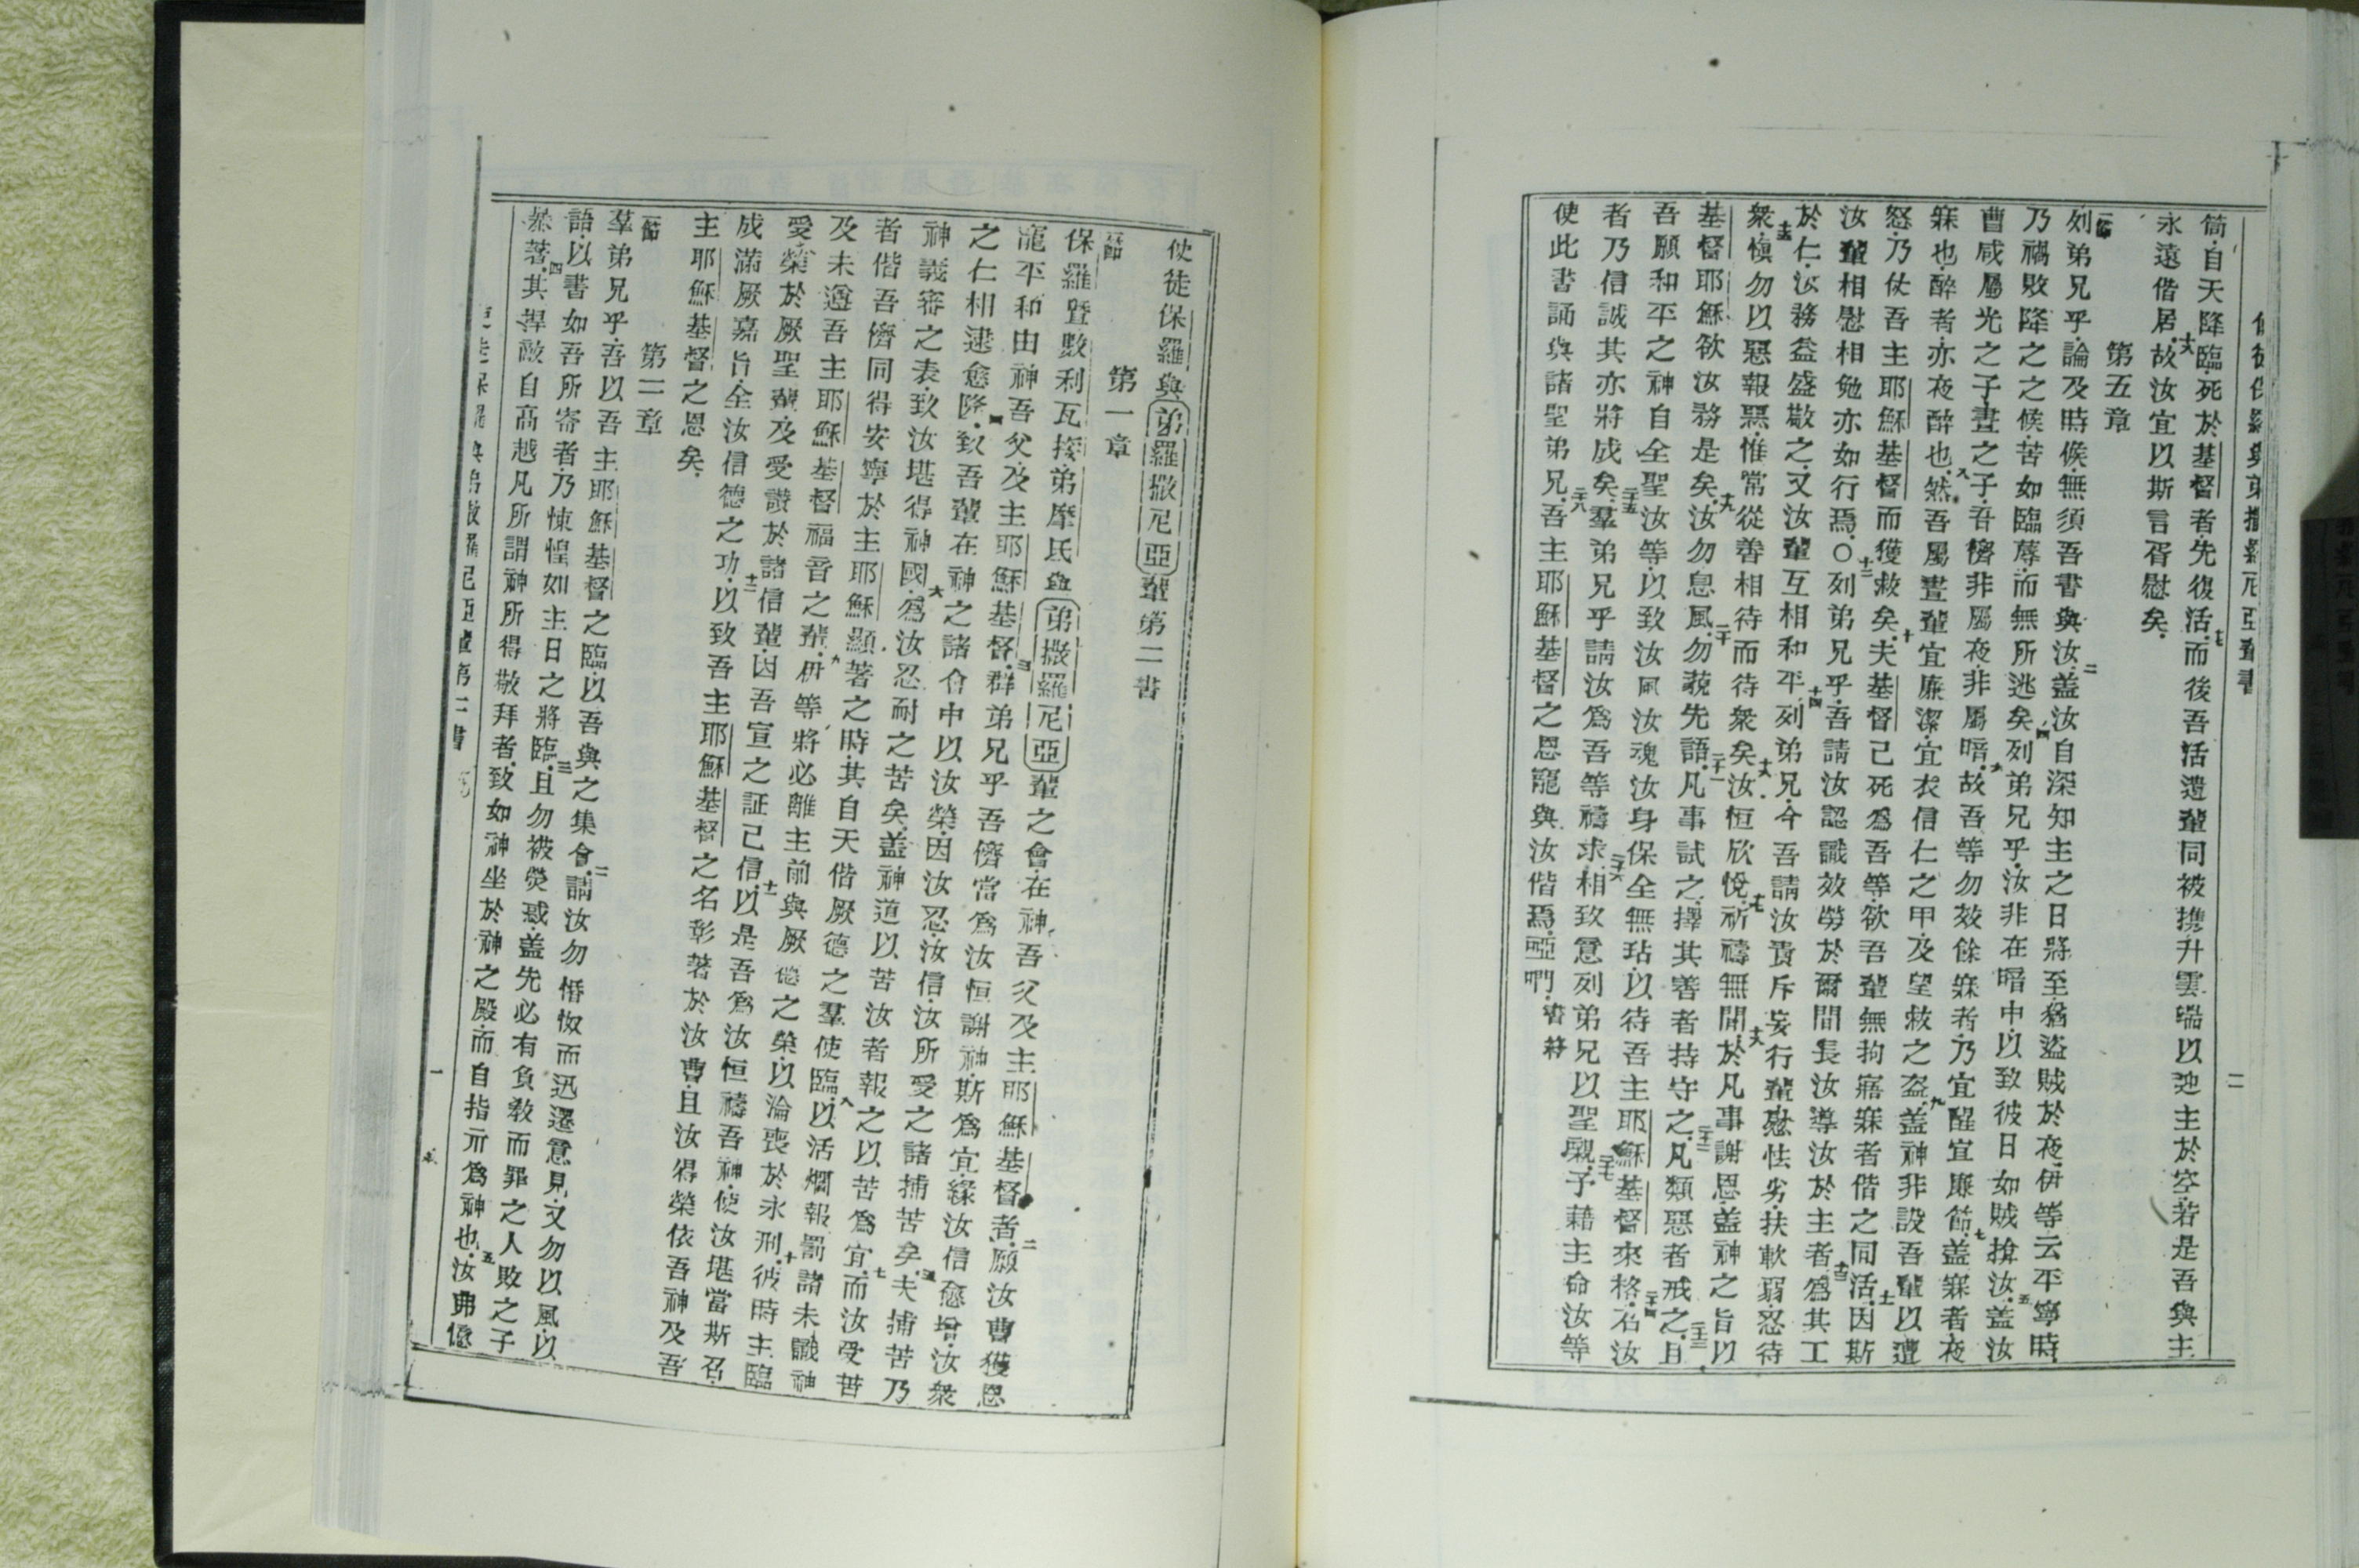 使徒保羅與弟撒羅尼亞輩書
二
筒.自天降臨.死於基督者.先復活.七而後吾活遺輩同被攜升雲端以迎主於空.若是吾與主
永遠偕居.六故汝宜以斯言胥慰矣.
第五章
一節
列弟兄乎.論及時候.無須吾書與汝.二蓋汝自深知主之日將至.猶盜賊於夜.伊等云平寧時
乃禍敗降之之候.苦如臨蓐.而無所逃矣.四列弟兄乎.汝非在暗中.以致彼日如賊揜汝.五蓋汝
曹咸屬光之子晝之子.吾儕非屬夜.非屬暗.六故吾等勿效餘寐者.乃宜醒宜廉節.七蓋寐者夜
寐也.醉者.亦夜醉也.八然吾屬晝輩宜廉潔.宜衣信仁之甲.及望救之盔.九蓋神非設吾輩以遭
怒.乃仗吾主耶穌基督而獲救矣.十夫基督已死為吾等.欲吾輩無拘寤寐者偕之同活.十一因斯
汝輩相慰相勉亦如行焉.〇十二列弟兄乎.吾請汝認識效勞於爾間.長汝導汝於主者.十三為其工
於仁.汝務益盛敬之.又汝輩互相和平.十四列弟兄.今吾請汝責斥妄行輩.慰怯劣.扶軟弱.忍待
眾.十五慎勿以惡報惡.惟常從善相待而待眾矣.十六汝恒欣悅.十七祈禱無間.十八於凡事謝恩.蓋神之旨以
基督耶穌欲汝務是矣.十九汝勿息風.二十勿藐先語.二十一凡事試之.擇其善者持守之.二十二凡類惡者戒之.二十三且
吾願和平之神自全聖汝等.以致汝風汝魂汝身保全無玷.以待吾主耶穌基督來格.二十四召汝
者乃信誠其亦將成矣.二十五羣弟兄乎請汝為吾等禱求.二十六相致意列弟兄以聖親.二十七予藉主命汝等
使此書誦與諸聖弟兄.二十八吾主耶穌基督之恩寵與汝偕焉.啞們.書終
使徒保羅與弟羅撒尼亞輩第二書
第一章
一節
保羅暨數利瓦挼弟摩氐與弟撒羅尼亞輩之會.在神吾父及主耶穌基督者.二願汝曹獲恩
寵平和由神吾父及主耶穌基督.三群弟兄乎吾儕當為汝恒謝神.斯為宜.緣汝信愈增.汝眾
之仁相逮愈隆.四致吾輩在神之諸會中以汝榮.因汝忍.汝信.汝所受之諸捕苦矣.五夫捕苦乃
神義審之表致汝堪得神國.六為汝忍耐之苦矣.蓋神道以苦汝者報之以苦為宜.七而汝受苦
者偕吾儕同得安寧於主耶穌顯著之時.其自天偕厥德之羣使臨.八以活爛報罰諸未識神
及未遵吾主耶穌基督福音之輩.九伊等將必離主前與厥德之榮.以淪喪於永刑.十彼時主臨
愛榮於厥聖輩.及受讚於諸信輩.因吾宣之証已信.十一以是吾為汝恒禱吾神.使汝堪當斯召.
成滿厥嘉旨.全汝信德之功.十二以致吾主耶穌基督之名彰著於汝曹.且汝得榮依吾神及吾
主耶穌基督之恩矣.
第二章
一節
羣弟兄乎.吾以吾主耶穌基督之臨.以吾與之集會.二請汝勿惛怓而迅遷意見.又勿以風.以
語.以書如吾所寄者.乃悚惶如主日之將臨.三且勿被熒惑.蓋先必有負教而罪之人敗之子
㬥著.四其捍敵自高越凡所謂神所得敬拜者.致如神坐於神之殿.而自指示為神也.五汝弗憶
使徒保羅與弟撒羅尼亞輩第二書
一